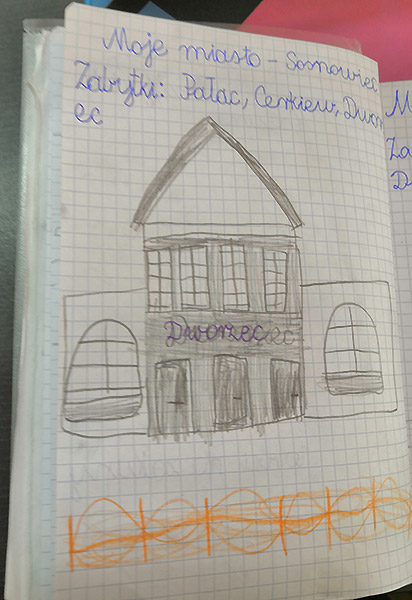 Moje miasto - Sosnowiec
Zabytki: Pałac, Cerkiew, Dworz
ec
Dworzec
M
Za
D